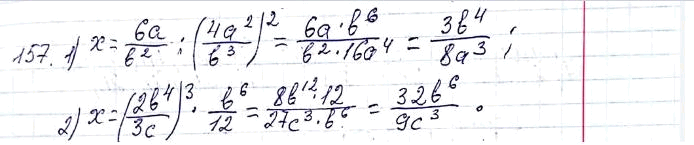 157. 1) x = 6a/b² : (4a²/b³)² = 6a·b⁶/b²·16a⁴ = 3b⁴/8a³ ;
2) x = (2b⁴/3c)³ · b⁶/12 = 8b¹²·12/27c³·b⁶ = 32b⁶/9c³ .